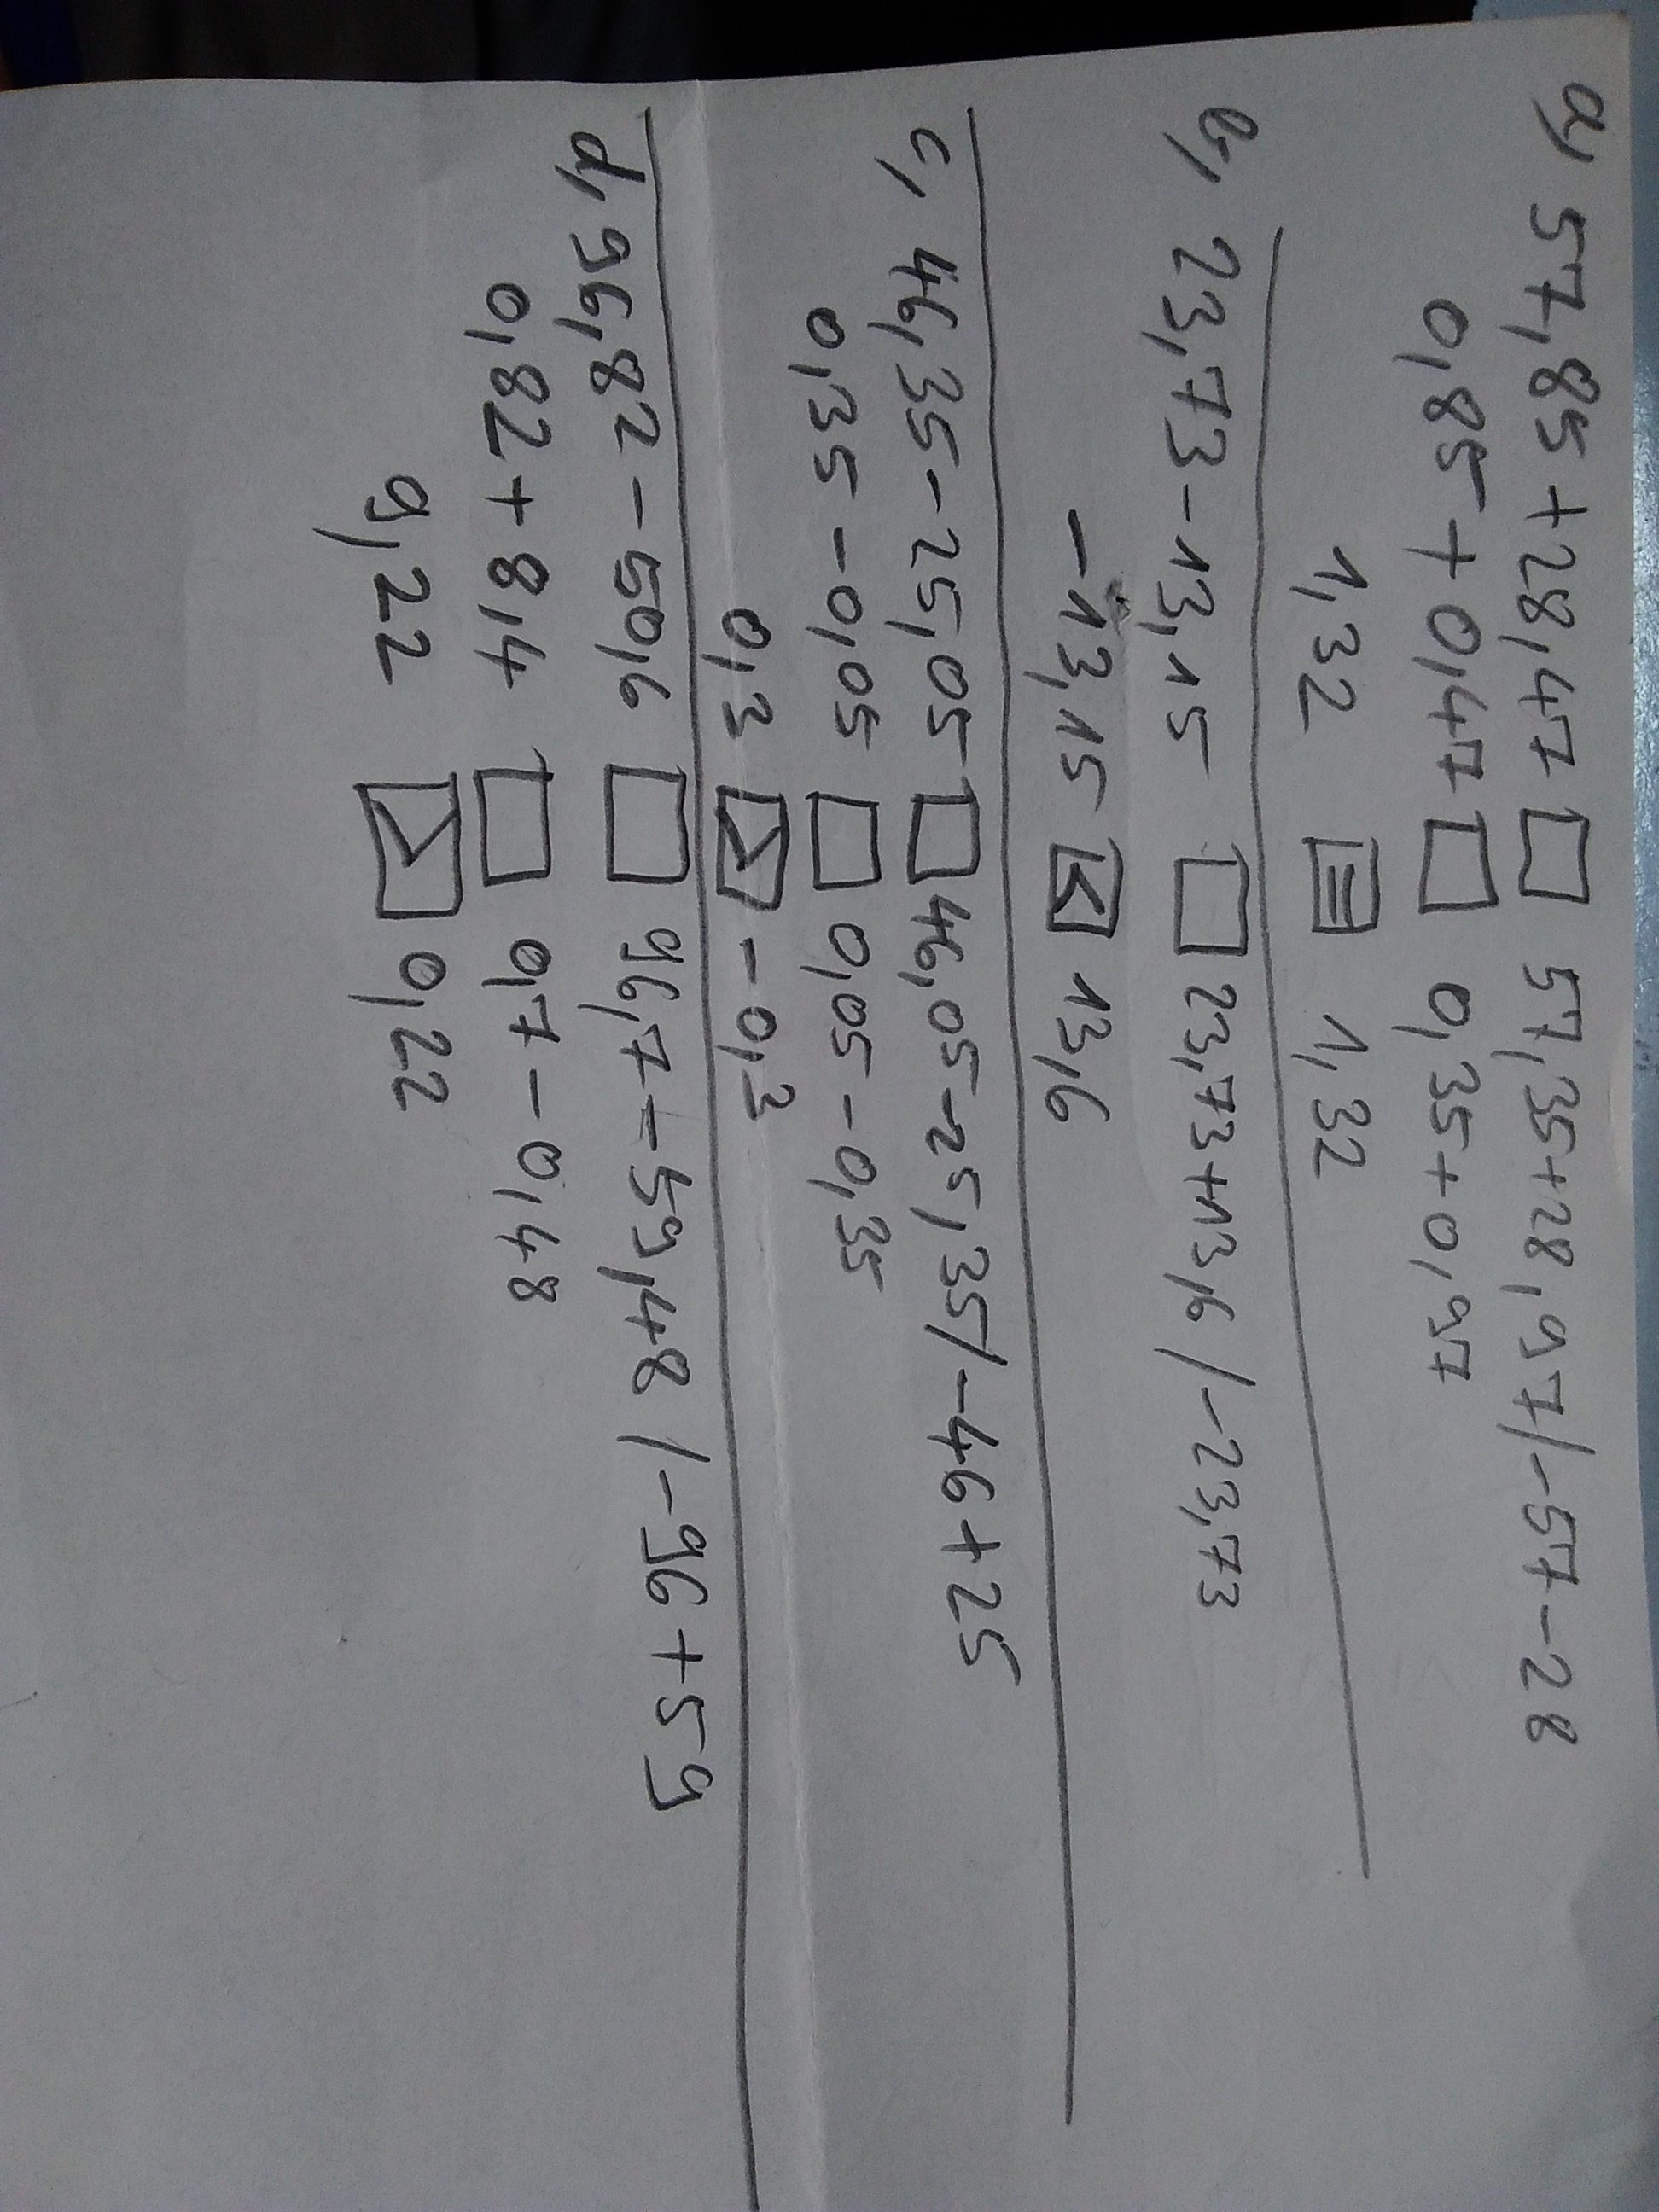 a, 57,85 + 28,47 □ 57,35+28,97/-57-28
0,85 + 0,47 □ 0,35+0,97
1,32 = 1,32
b, 23,73-13,15 □ 23,73+13,6/-23,73
-13,15 < 13,6
c, 46,35-25,05 □ 46,05-25,35/-46+25
0,35-0,05 □ 0,05-0,35
0,3 > -0,3
d, 96,82-50,6 □ 96,7-59,48/-96+59
0,82+8,4 □ 0,7-0,48
9,22 > 0,22